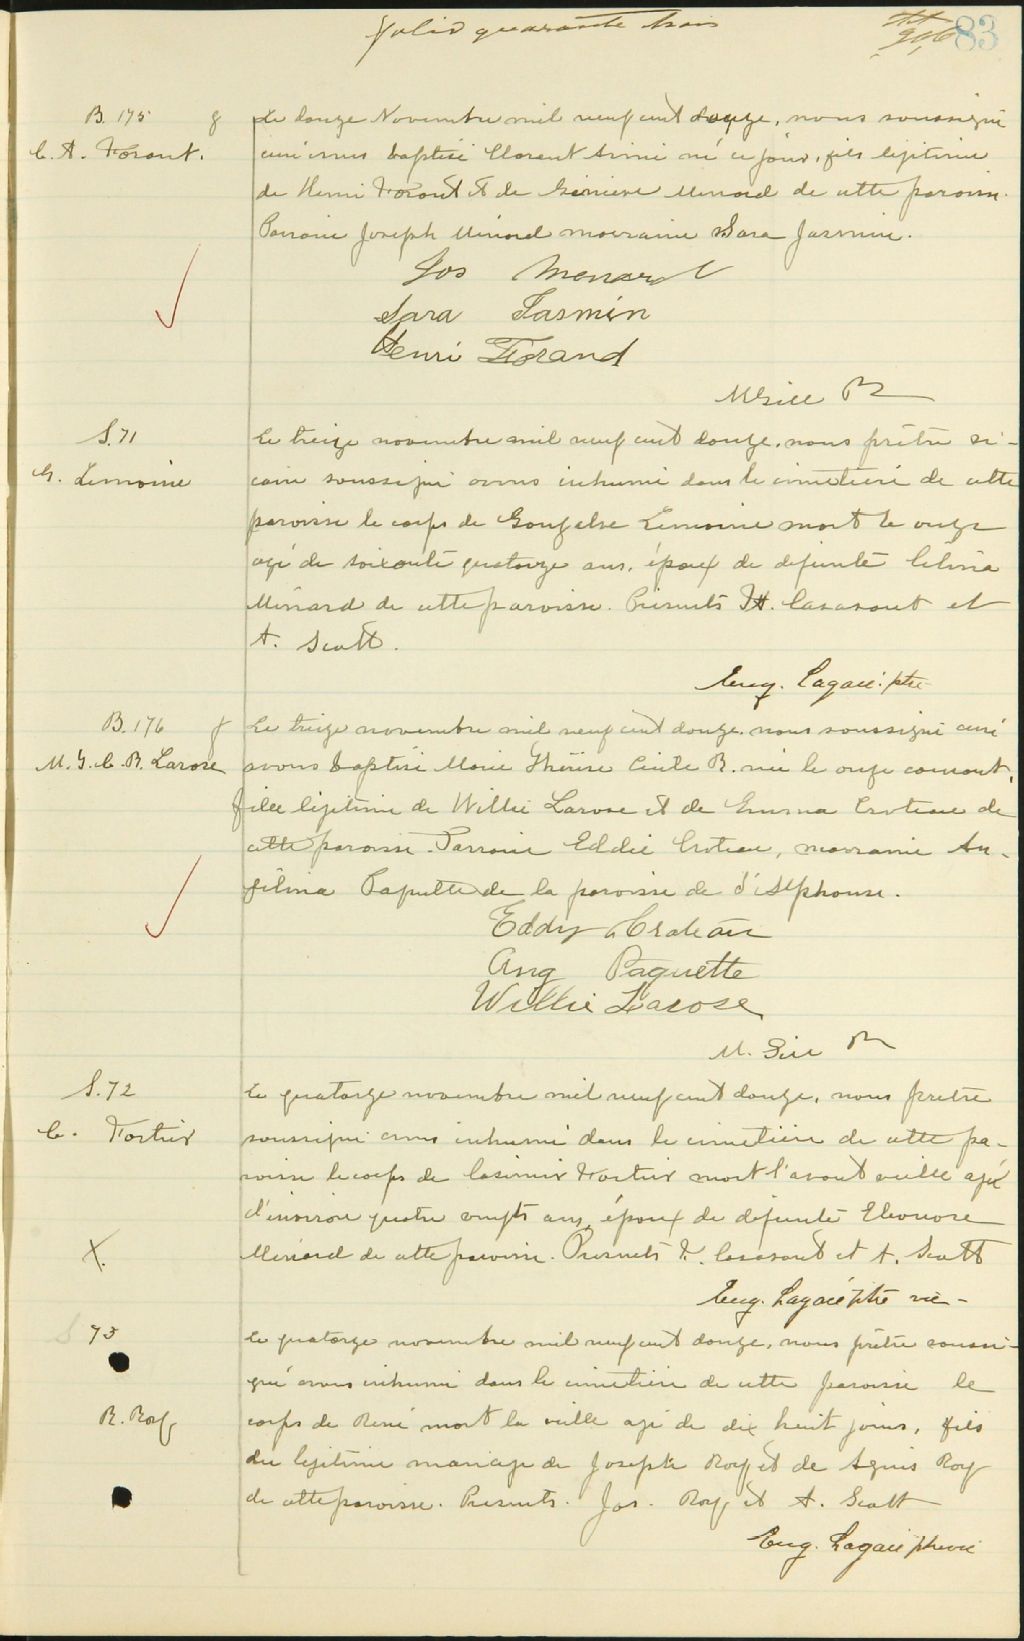 Folio quarante trois
83
B. 175
C. A. Forant.
Le douze Novembre mil neuf cent douze, nous soussigné
curé avons baptisé Clorent Aimé né ce jour, fils légitime
de Henri Forant et de Menard de cette paroisse.
Parrain Joseph Ménard marraine Sara Jasmin.
Jos Menard
Sara Jasmin
Henri Forand
S. 71
G. Lemoine
Le treize novembre mil neuf cent douze, nous prêtre vi-
caire soussigné avons inhumé dans le cimetière de cette
paroisse le corps de Lemoine mort le onze
agé de soixante quatorze ans, époux de défunte Célina
Ménard de cette paroisse. Présents Casavant et
A. Scott.
Eug. Lagacé ptre
B. 176
M. T. C. B. Larose
Le treize novembre mil neuf cent douze nous soussigné curé
avons baptisé Marie Thérèse Cécile B. née le onze courant,
fille légitime de Willie Larose et de Emma Croteau de
cette paroisse. Parrain Eddie Croteau, marraine An-
gélina Paquette de la paroisse de St Alphonse.
Eddy Croteau
Ang Paquette
Willie Larose
S. 72
C. Fortier
X.
Le quatorze novembre mil neuf cent douze, nous prêtre
soussigné avons inhumé dans le cimetière de cette pa-
roisse le corps de Casimir Fortier mort l'avant veille agé
d'environ quatre vingts ans, époux de défunte Eleonore
Ménard de cette paroisse. Présents F. Casavant et A. Scott
Eug. Lagacé ptre vic-
S 73
R. Roy
Le quatorze novembre mil neuf cent douze, nous prêtre soussi-
gné avons inhumé dans le cimetière de cette paroisse le
corps de René mort la veille agé de dix huit jours, fils
du légitime mariage de Joseph Roy et de Agnès Roy
de cette paroisse. Présents. Jos. Roy et A. Scott
Eug. Lagacé ptre vic